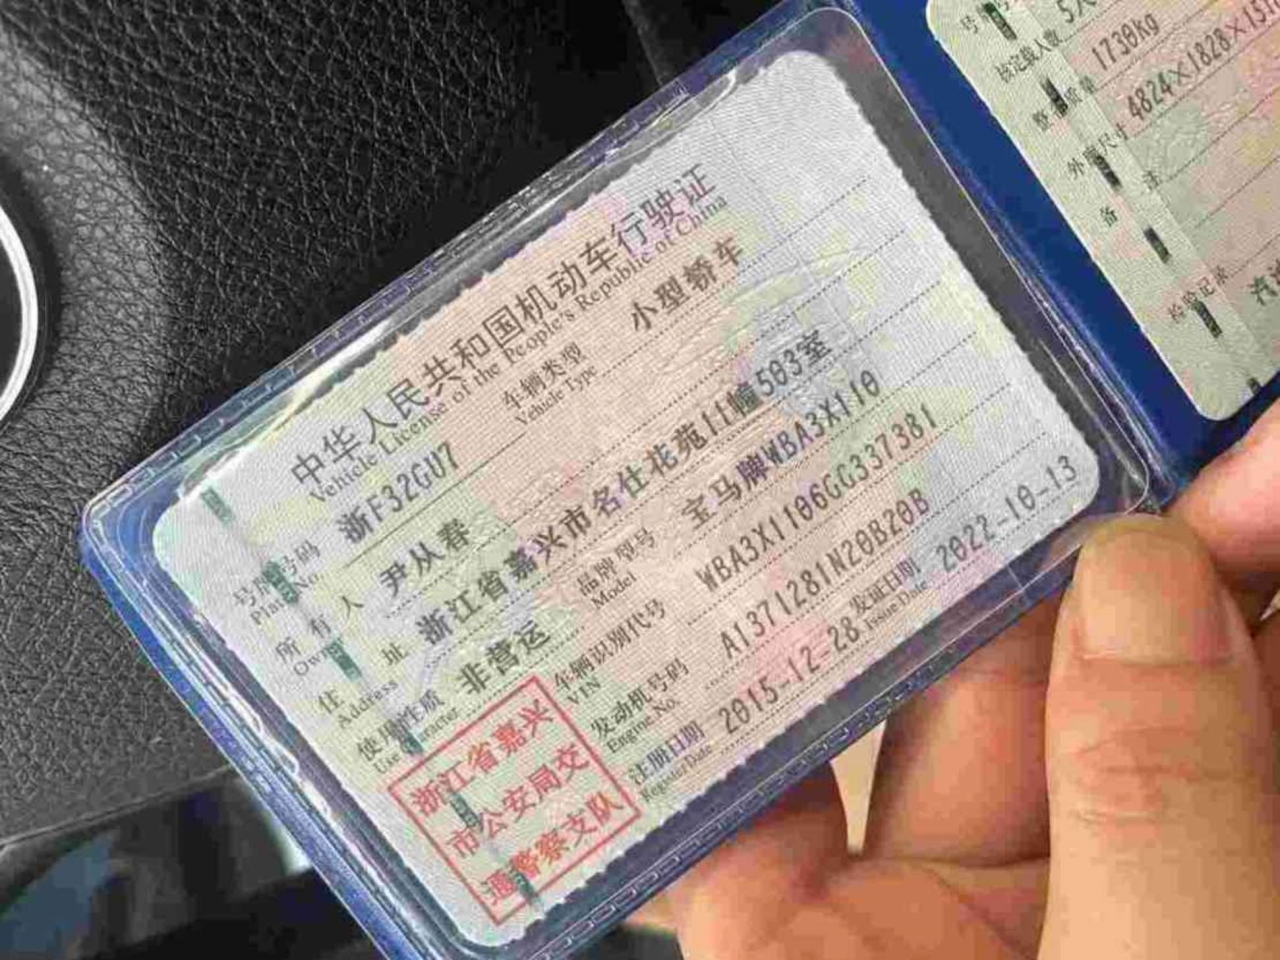 中华人民共和国机动车行驶证
Vehicle License of the People's Republic of China
号牌号码 浙F32GU7 车辆类型 小型轿车
Plate No. Vehicle Type
所有人 尹从春
Owner
住址 浙江省嘉兴市名仕花苑11幢503室
Address
使用性质 非营运 品牌型号 宝马牌WBA3X110
Use Character Model
车辆识别代号 WBA3X1106GG337381
VIN
发动机号码 A1371281N20B20B
Engine No.
注册日期 2015-12-28 发证日期 2022-10-13
Register Date Issue Date
浙江省嘉兴
市公安局交
通警察支队
核定载人数 5人
整备质量 1730kg
外廓尺寸 4824×1828×151
备注
检验记录